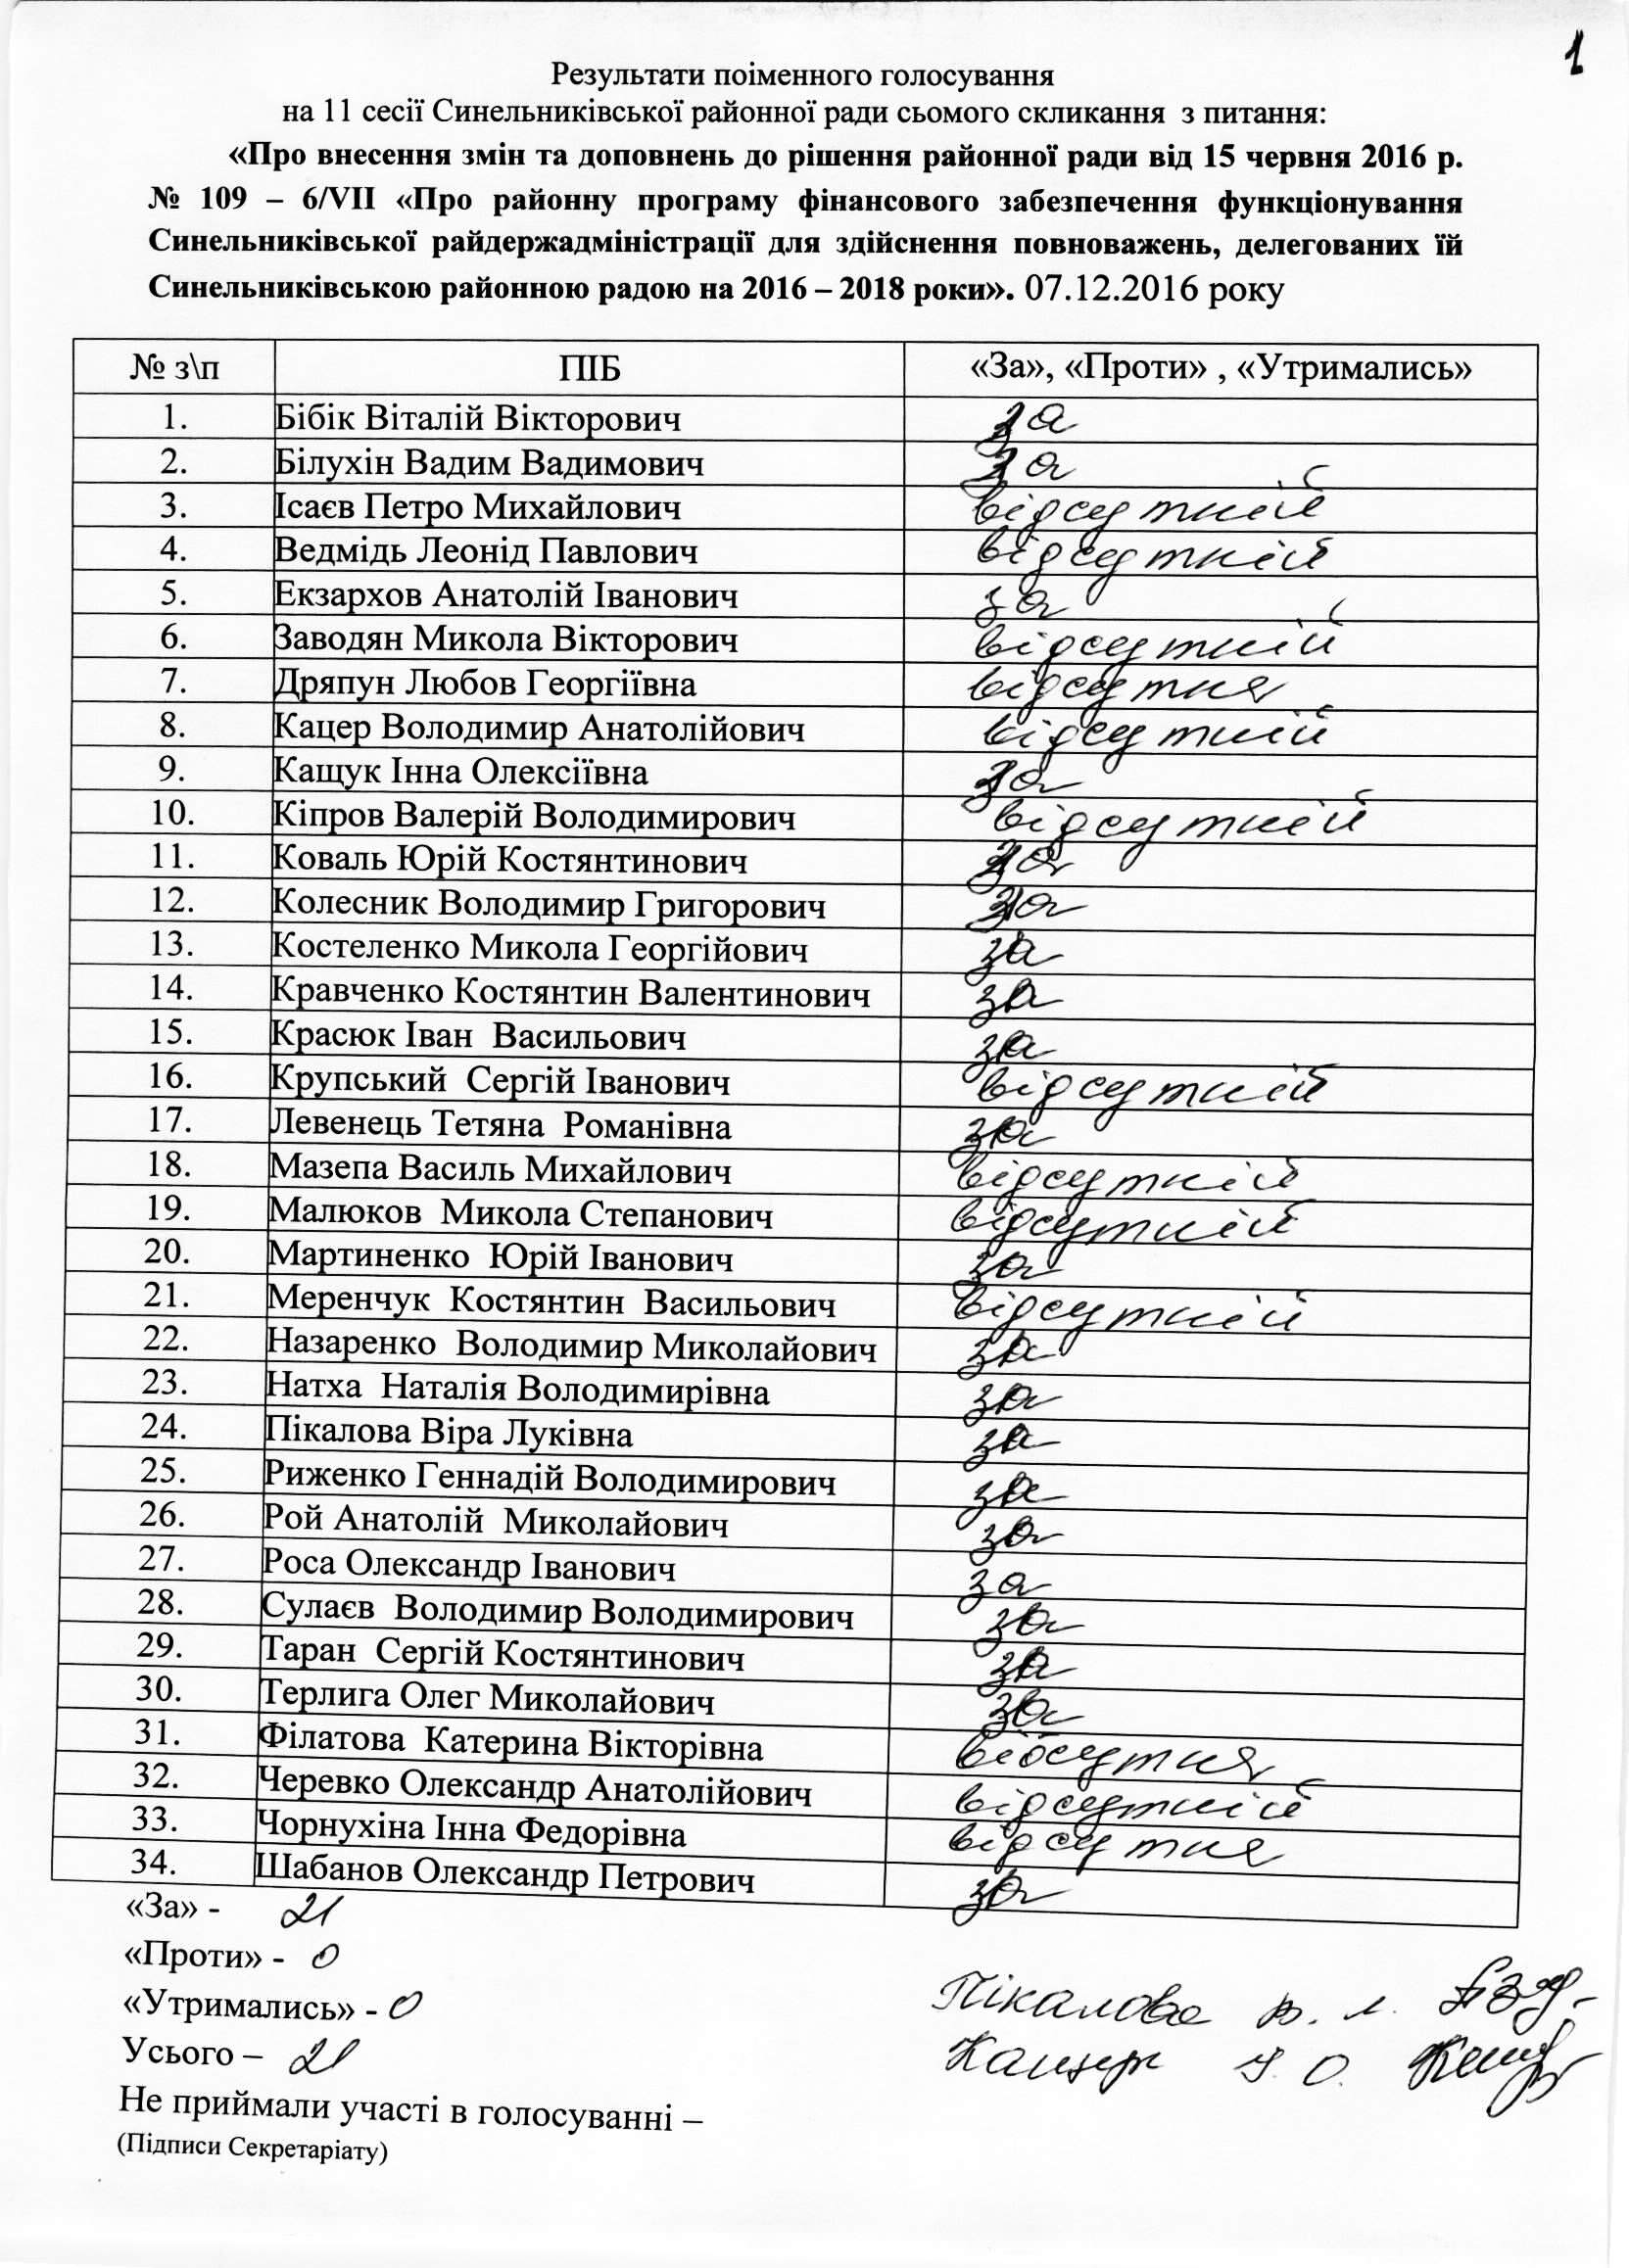 1
Результати поіменного голосування
на 11 сесії Синельниківської районної ради сьомого скликання з питання:
«Про внесення змін та доповнень до рішення районної ради від 15 червня 2016 р.
№ 109 – 6/VII «Про районну програму фінансового забезпечення функціонування
Синельниківської райдержадміністрації для здійснення повноважень, делегованих їй
Синельниківською районною радою на 2016 – 2018 роки». 07.12.2016 року
№ з\п ПІБ «За», «Проти» , «Утримались»
1. Бібік Віталій Вікторович за
2. Білухін Вадим Вадимович за
3. Ісаєв Петро Михайлович відсутній
4. Ведмідь Леонід Павлович відсутній
5. Екзархов Анатолій Іванович за
6. Заводян Микола Вікторович відсутній
7. Дряпун Любов Георгіївна відсутня
8. Кацер Володимир Анатолійович відсутній
9. Кащук Інна Олексіївна за
10. Кіпров Валерій Володимирович відсутній
11. Коваль Юрій Костянтинович за
12. Колесник Володимир Григорович за
13. Костеленко Микола Георгійович за
14. Кравченко Костянтин Валентинович за
15. Красюк Іван Васильович за
16. Крупський Сергій Іванович відсутній
17. Левенець Тетяна Романівна за
18. Мазепа Василь Михайлович відсутній
19. Малюков Микола Степанович відсутній
20. Мартиненко Юрій Іванович за
21. Меренчук Костянтин Васильович відсутній
22. Назаренко Володимир Миколайович за
23. Натха Наталія Володимирівна за
24. Пікалова Віра Луківна за
25. Риженко Геннадій Володимирович за
26. Рой Анатолій Миколайович за
27. Роса Олександр Іванович за
28. Сулаєв Володимир Володимирович за
29. Таран Сергій Костянтинович за
30. Терлига Олег Миколайович за
31. Філатова Катерина Вікторівна відсутня
32. Черевко Олександр Анатолійович відсутній
33. Чорнухіна Інна Федорівна відсутня
34. Шабанов Олександр Петрович за
«За» - 21
«Проти» - 0
«Утримались» - 0
Пікалова В. Л.
Усього – 21
Кащук І. О.
Не приймали участі в голосуванні –
(Підписи Секретаріату)